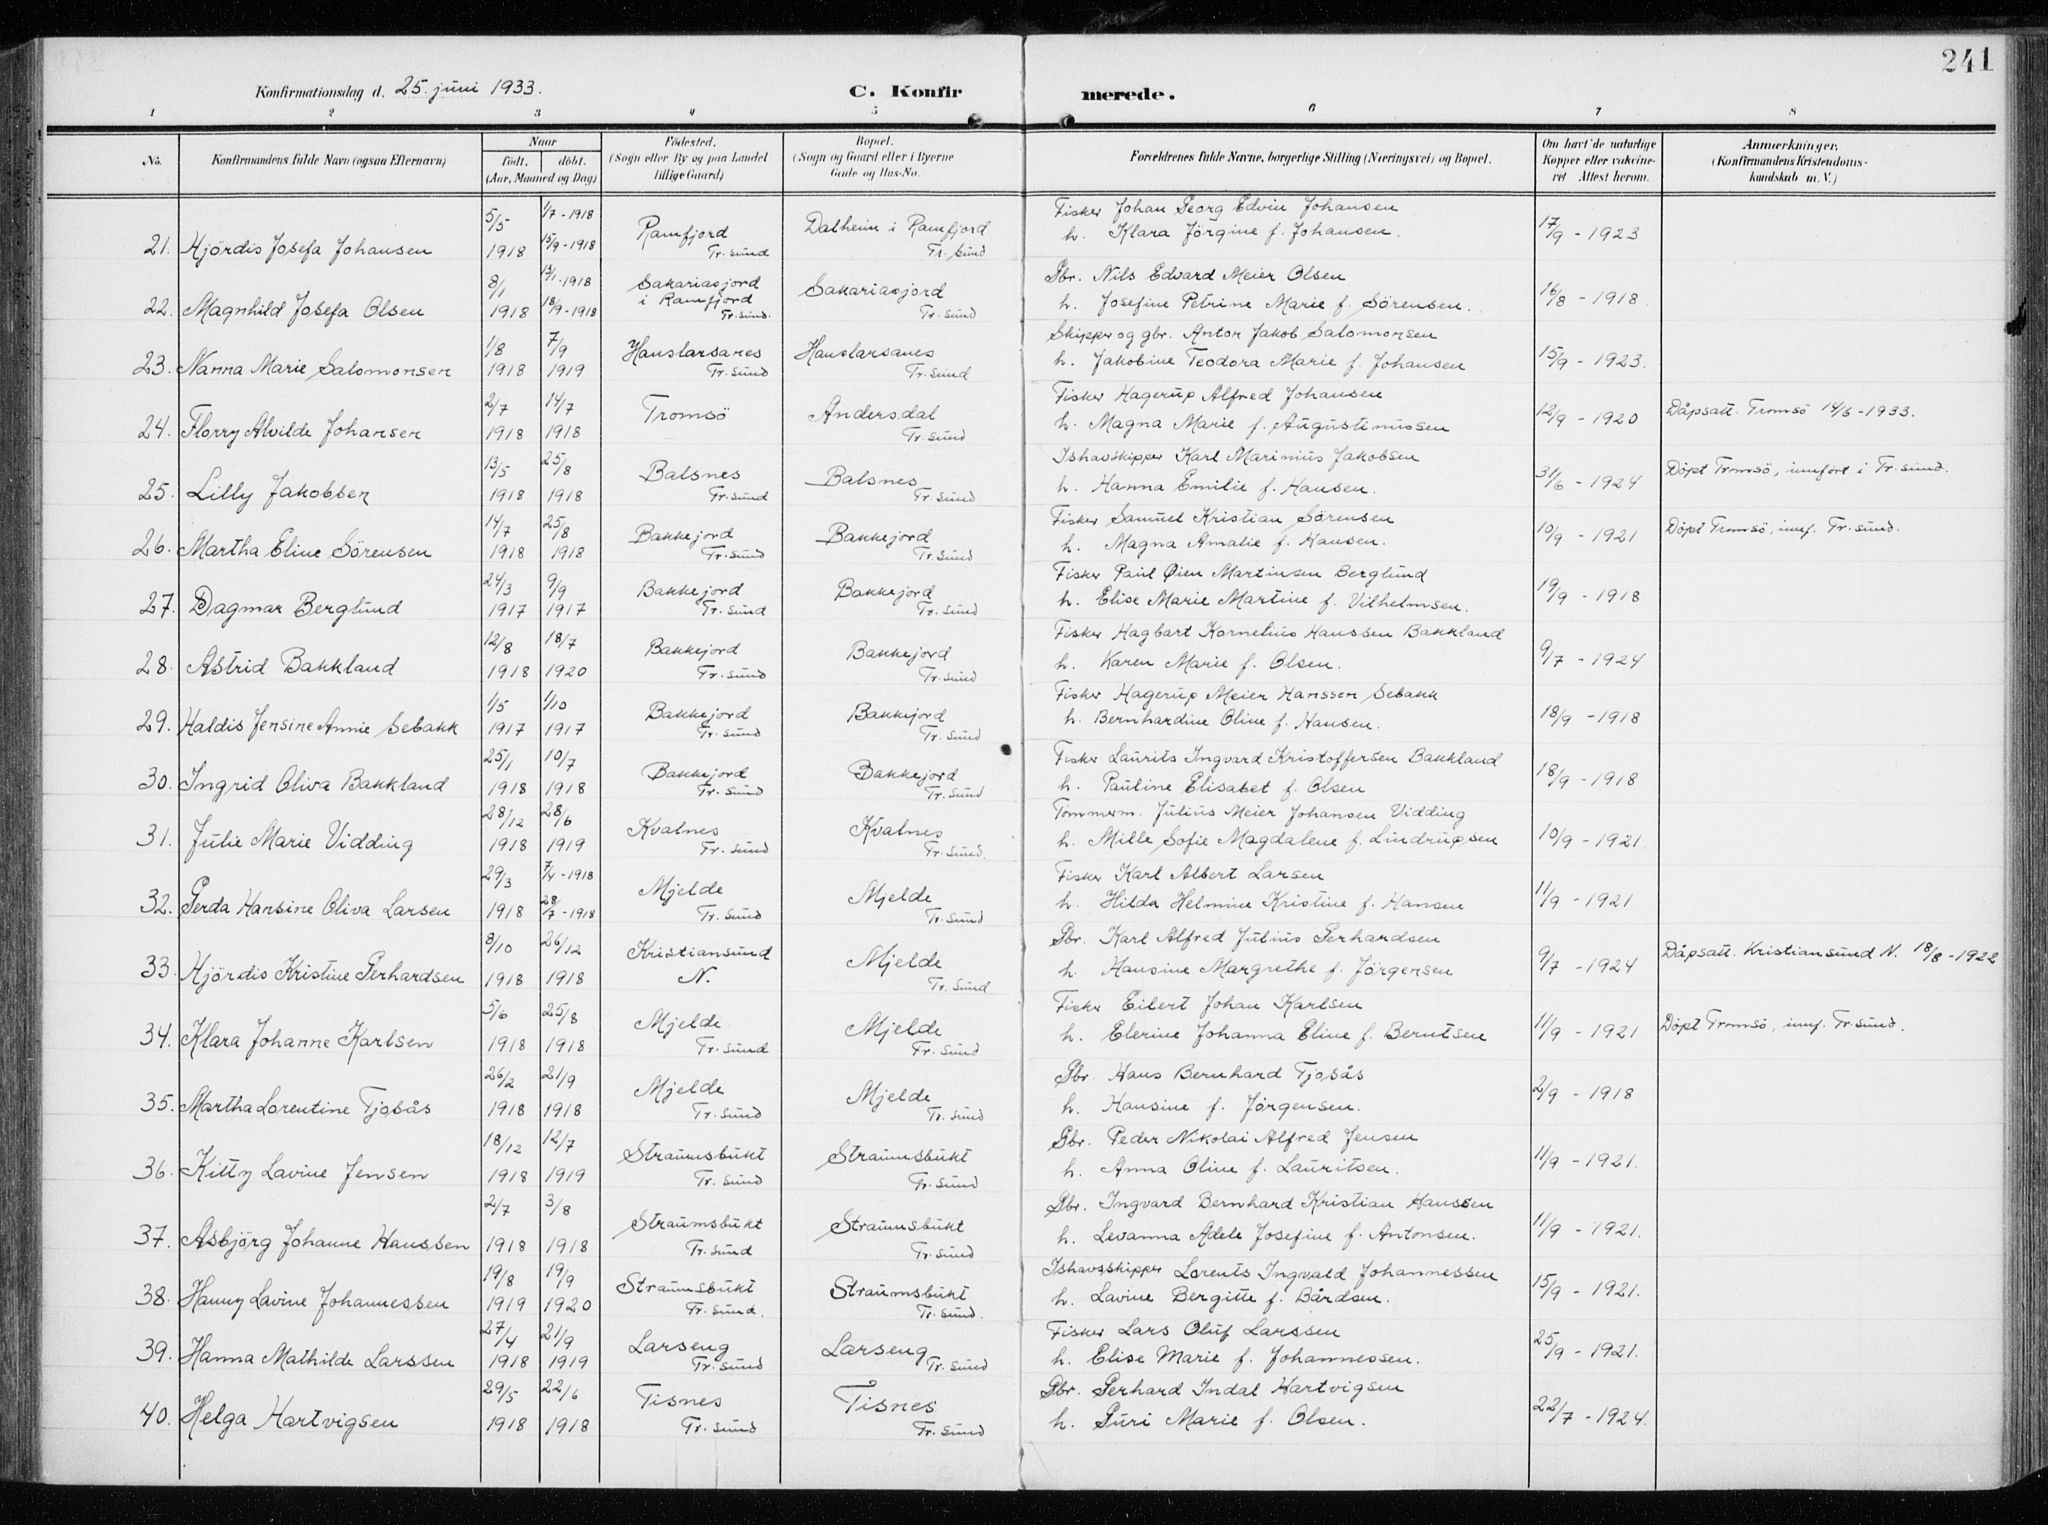 241
Konfirmationsdag d. 25. juni 1933. C. Konfirmerede.
1 2 3 4 5 6 7 8
No. Konfirmandens fulde Navn (ogsaa Efternavn) Naar födt. döbt. (Aar, Maaned og Dag) Födested. (Sogn eller By og paa Landet tillige Gaard) Bopæl. (Sogn og Gaard eller i Byerne Gade og Hus-No. Forældrenes fulde Navne, borgerlige Stilling (Næringsvei) og Bopæl. Om havt de naturlige Kopper eller vakcineret Attest herom. Anmærkninger. (Konfirmandens Kristendomskundskab m. V.)
21. Hjördis Josefa Johansen 5/5 1918 1/7-1918 15/9-1918 Ramfjord Tr.sund Dalheim i Ramfjord Tr.sund Fisker Johan Georg Edvin Johansen h. Klara Jörgine f. Johansen. 17/9 - 1923
22. Magnhild Josefa Olsen 8/1 1918 13/1-1918 18/9-1918 Sakariasjord i Ramfjord Tr.sund. Sakariasjord Tr.sund Gbr. Nils Edvard Meier Olsen h. Josefine Petrine Marie f. Sörensen. 16/8 - 1918.
23. Nanna Marie Salomonsen 1/8 1918 7/9 1919 Hanslarsanes Tr.sund Hanslarsanes Tr.sund Skipper og gbr. Anton Jakob Salomonsen h. Jakobine Teodora Marie f. Johansen 15/9 - 1923.
24. Florry Alvilde Johansen 2/7 1918 14/7 1918 Tromsö Andersdal Tr.sund Fisker Hagerup Alfred Johansen h. Magna Marie f. Augustinussen 12/9 - 1920 Dåpsatt. Tromsö 14/6-1933.
25. Lilly Jakobsen 13/5 1918 25/8 1918 Balsnes Tr.sund Balsnes Tr.sund Ishavsskipper Karl Marinius Jakobsen h. Hanna Emilie f. Hansen. 31/6 - 1924 Döpt Tromsö, innfört i Tr.sund.
26. Martha Eline Sörensen 14/7 1918 25/8 1918 Bakkejord Tr.sund Bakkejord Tr.sund Fisker Samuel Kristian Sörensen h. Magna Amalie f. Hansen. 10/9 - 1921 Döpt Tromsö, innf. Tr.sund.
27. Dagmar Berglund 24/3 1917 9/9 1917 Bakkejord Tr.sund Bakkejord Tr.sund Fisker Paul Øien Martinsen Berglund h. Elise Marie Martine f. Vilhelmsen. 19/9 - 1918
28. Astrid Bakkland 12/8 1918 18/7 1920 Bakkejord Tr.sund Bakkejord Tr.sund Fisker Hagbart Kornelius Hanssen Bakkland h. Karen Marie f. Olsen. 9/7 - 1924
29. Haldis Jensine Annie Sebakk 1/5 1917 1/10 1917 Bakkejord Tr.sund Bakkejord Tr.sund Fisker Hagerup Meier Hanssen Sebakk h. Bernhardine Oline f. Hansen. 18/9 - 1918
30. Ingrid Oliva Bakkland 25/1 1918 10/7 1918 Bakkejord Tr.sund Bakkejord Tr.sund Fisker Laurits Ingvard Kristoffersen Bakkland h. Pauline Elisabet f. Olsen 18/9 - 1918
31. Julie Marie Vidding 28/12 1918 28/6 1919 Kvalnes Tr.sund Kvalnes Tr.sund. Tömmerm. Julius Meier Johansen Vidding h. Mille Sofie Magdalene f. Lindrupsen 10/9 - 1921.
32. Gerda Hansine Oliva Larsen 29/3 1918 7/4-1918 28/7-1918 Mjelde Tr.sund Mjelde Tr.sund Fisker Karl Albert Larsen h. Hilda Helmine Kristine f. Hansen 11/9 - 1921
33. Hjördis Kristine Gerhardsen 8/10 1918 26/12 1918 Kristiansund N. Mjelde Tr.sund Gbr. Karl Alfred Julius Gerhardsen h. Hansine Margrethe f. Jörgensen 9/7 - 1924 Dåpsatt. Kristiansund N. 18/8-1922
34. Klara Johanne Karlsen 5/6 1918 25/8 1918 Mjelde Tr.sund Mjelde Tr.sund Fisker Eilert Johan Karlsen h. Elerine Johanna Eline f. Berntsen 11/9 - 1921 Döpt Tromsö, innf. Tr.sund.
35. Martha Lorentine Tjosås 26/2 1918 21/9 1918 Mjelde Tr.sund Mjelde Tr.sund Gbr. Hans Bernhard Tjosås h. Hansine f. Jörgensen. 2/9 - 1918
36. Kitty Lavine Jensen 18/12 1918 12/7 1919 Straumsbukt Tr.sund Straumsbukt Tr.sund Gbr. Peder Nikolai Alfred Jensen h. Anna Oline f. Lauritsen. 11/9 - 1921.
37. Asbjörg Johanne Hanssen 2/7 1918 3/8 1918 Straumsbukt Tr.sund Straumsbukt Tr.sund Gbr. Ingvard Bernhard Kristian Hanssen h. Levanna Adele Josefine f. Antonsen. 11/9 - 1921.
38. Hanny Lavine Johannessen 19/8 1919 19/9 1920 Straumsbukt Tr.sund. Straumsbukt Tr.sund. Ishavsskipper Lorents Ingvald Johannessen h. Lavine Bergitte f. Bårdsen. 15/9 - 1921.
39. Hanna Mathilde Larssen 27/4 1918 21/9 1919 Larseng Tr.sund Larseng Tr.sund Fisker Lars Oluf Larssen h. Elise Marie f. Johannessen. 25/9 - 1921.
40. Helga Hartvigsen 29/5 1918 22/6 1918 Tisnes Tr.sund Tisnes Tr.sund Gbr. Gerhard Indal Hartvigsen h. Guri Marie f. Olsen. 22/7 - 1924.